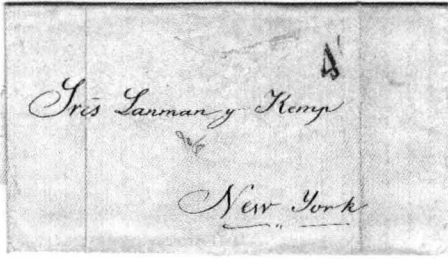 Sres Lanman y Kemp
New York